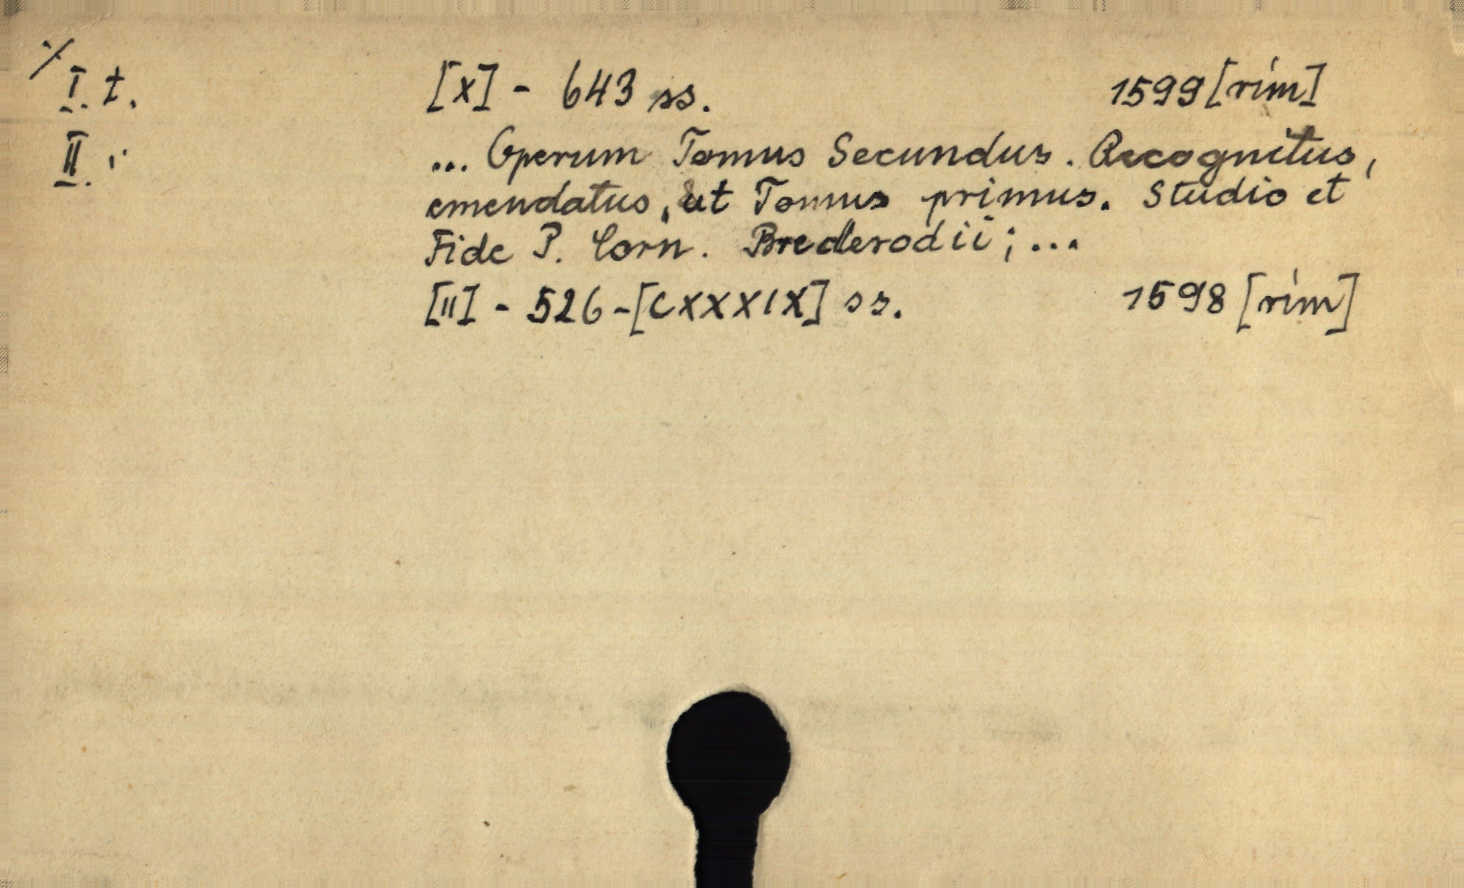 ·/·
I. t. [X] - 643 ss. 1599 [rím]
II. " ... Operum Tomus Secundus. Recognitus,
emendatus, ut Tomus primus. Studio et
Fide P. Corn. Brederodii; ...
[II] - 526 - [CXXXIX] ss. 1598 [rím]